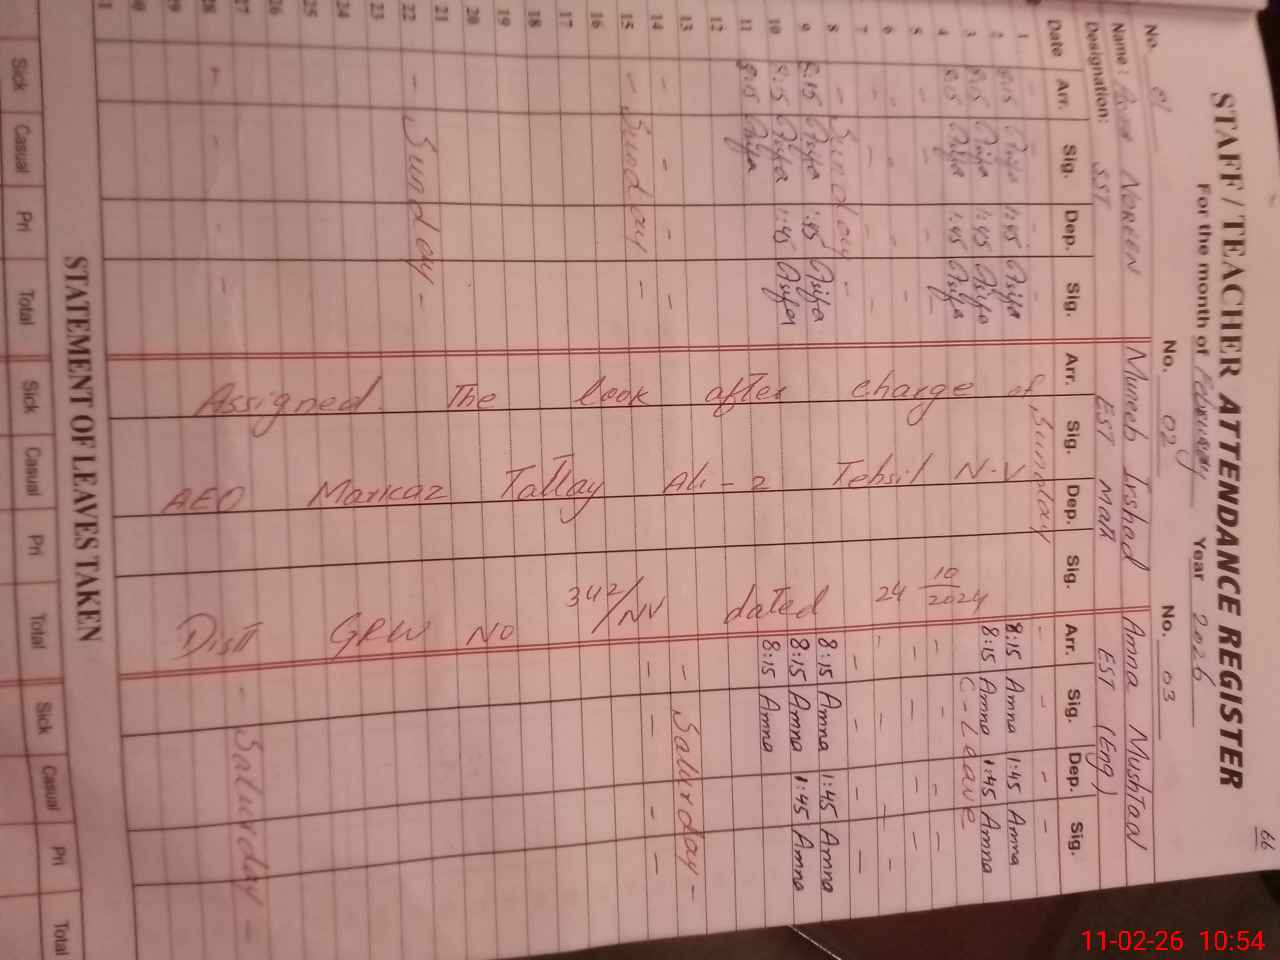 66
STAFF / TEACHER ATTENDANCE REGISTER
For the month of February Year 2026
No. 01 No. 02 No. 03
Name: NOREEN Muneeb Irshad Amna Mushtaq
Designation: SST EST Math EST (Eng)
Date Arr. Sig. Dep. Sig. Arr. Sig. Dep. Sig. Arr. Sig. Dep. Sig.
1 - Sunday -
2 8:15 Asifa 1:45 Asifa 8:15 Amna 1:45 Amna
3 8:15 Asifa 1:45 Asifa 8:15 Amna 1:45 Amna
4 8:15 Asifa 1:45 Asifa C-Leave
5 - - - -
6 - - - -
7 - - - -
8 - Sunday -
9 8:15 Asifa 1:45 Asifa 8:15 Amna 1:45 Amna
10 8:15 Asifa 1:45 Asifa 8:15 Amna 1:45 Amna
11 8:15 Asifa 8:15 Amna
12
13
14 - - - - - Saturday -
15 - Sunday - - - - -
16
17
18
19
20
21
22 - Sunday -
23
24
25
26
27
28 - - - - - Saturday -
29
30
31
Assigned The look after charge of
AEO Markaz Tatlay Ali-2 Tehsil N.V
Distt GRW NO 342/NV dated 24 10/2024
STATEMENT OF LEAVES TAKEN
Sick Casual Pri Total Sick Casual Pri Total Sick Casual Pri Total
11-02-26 10:54